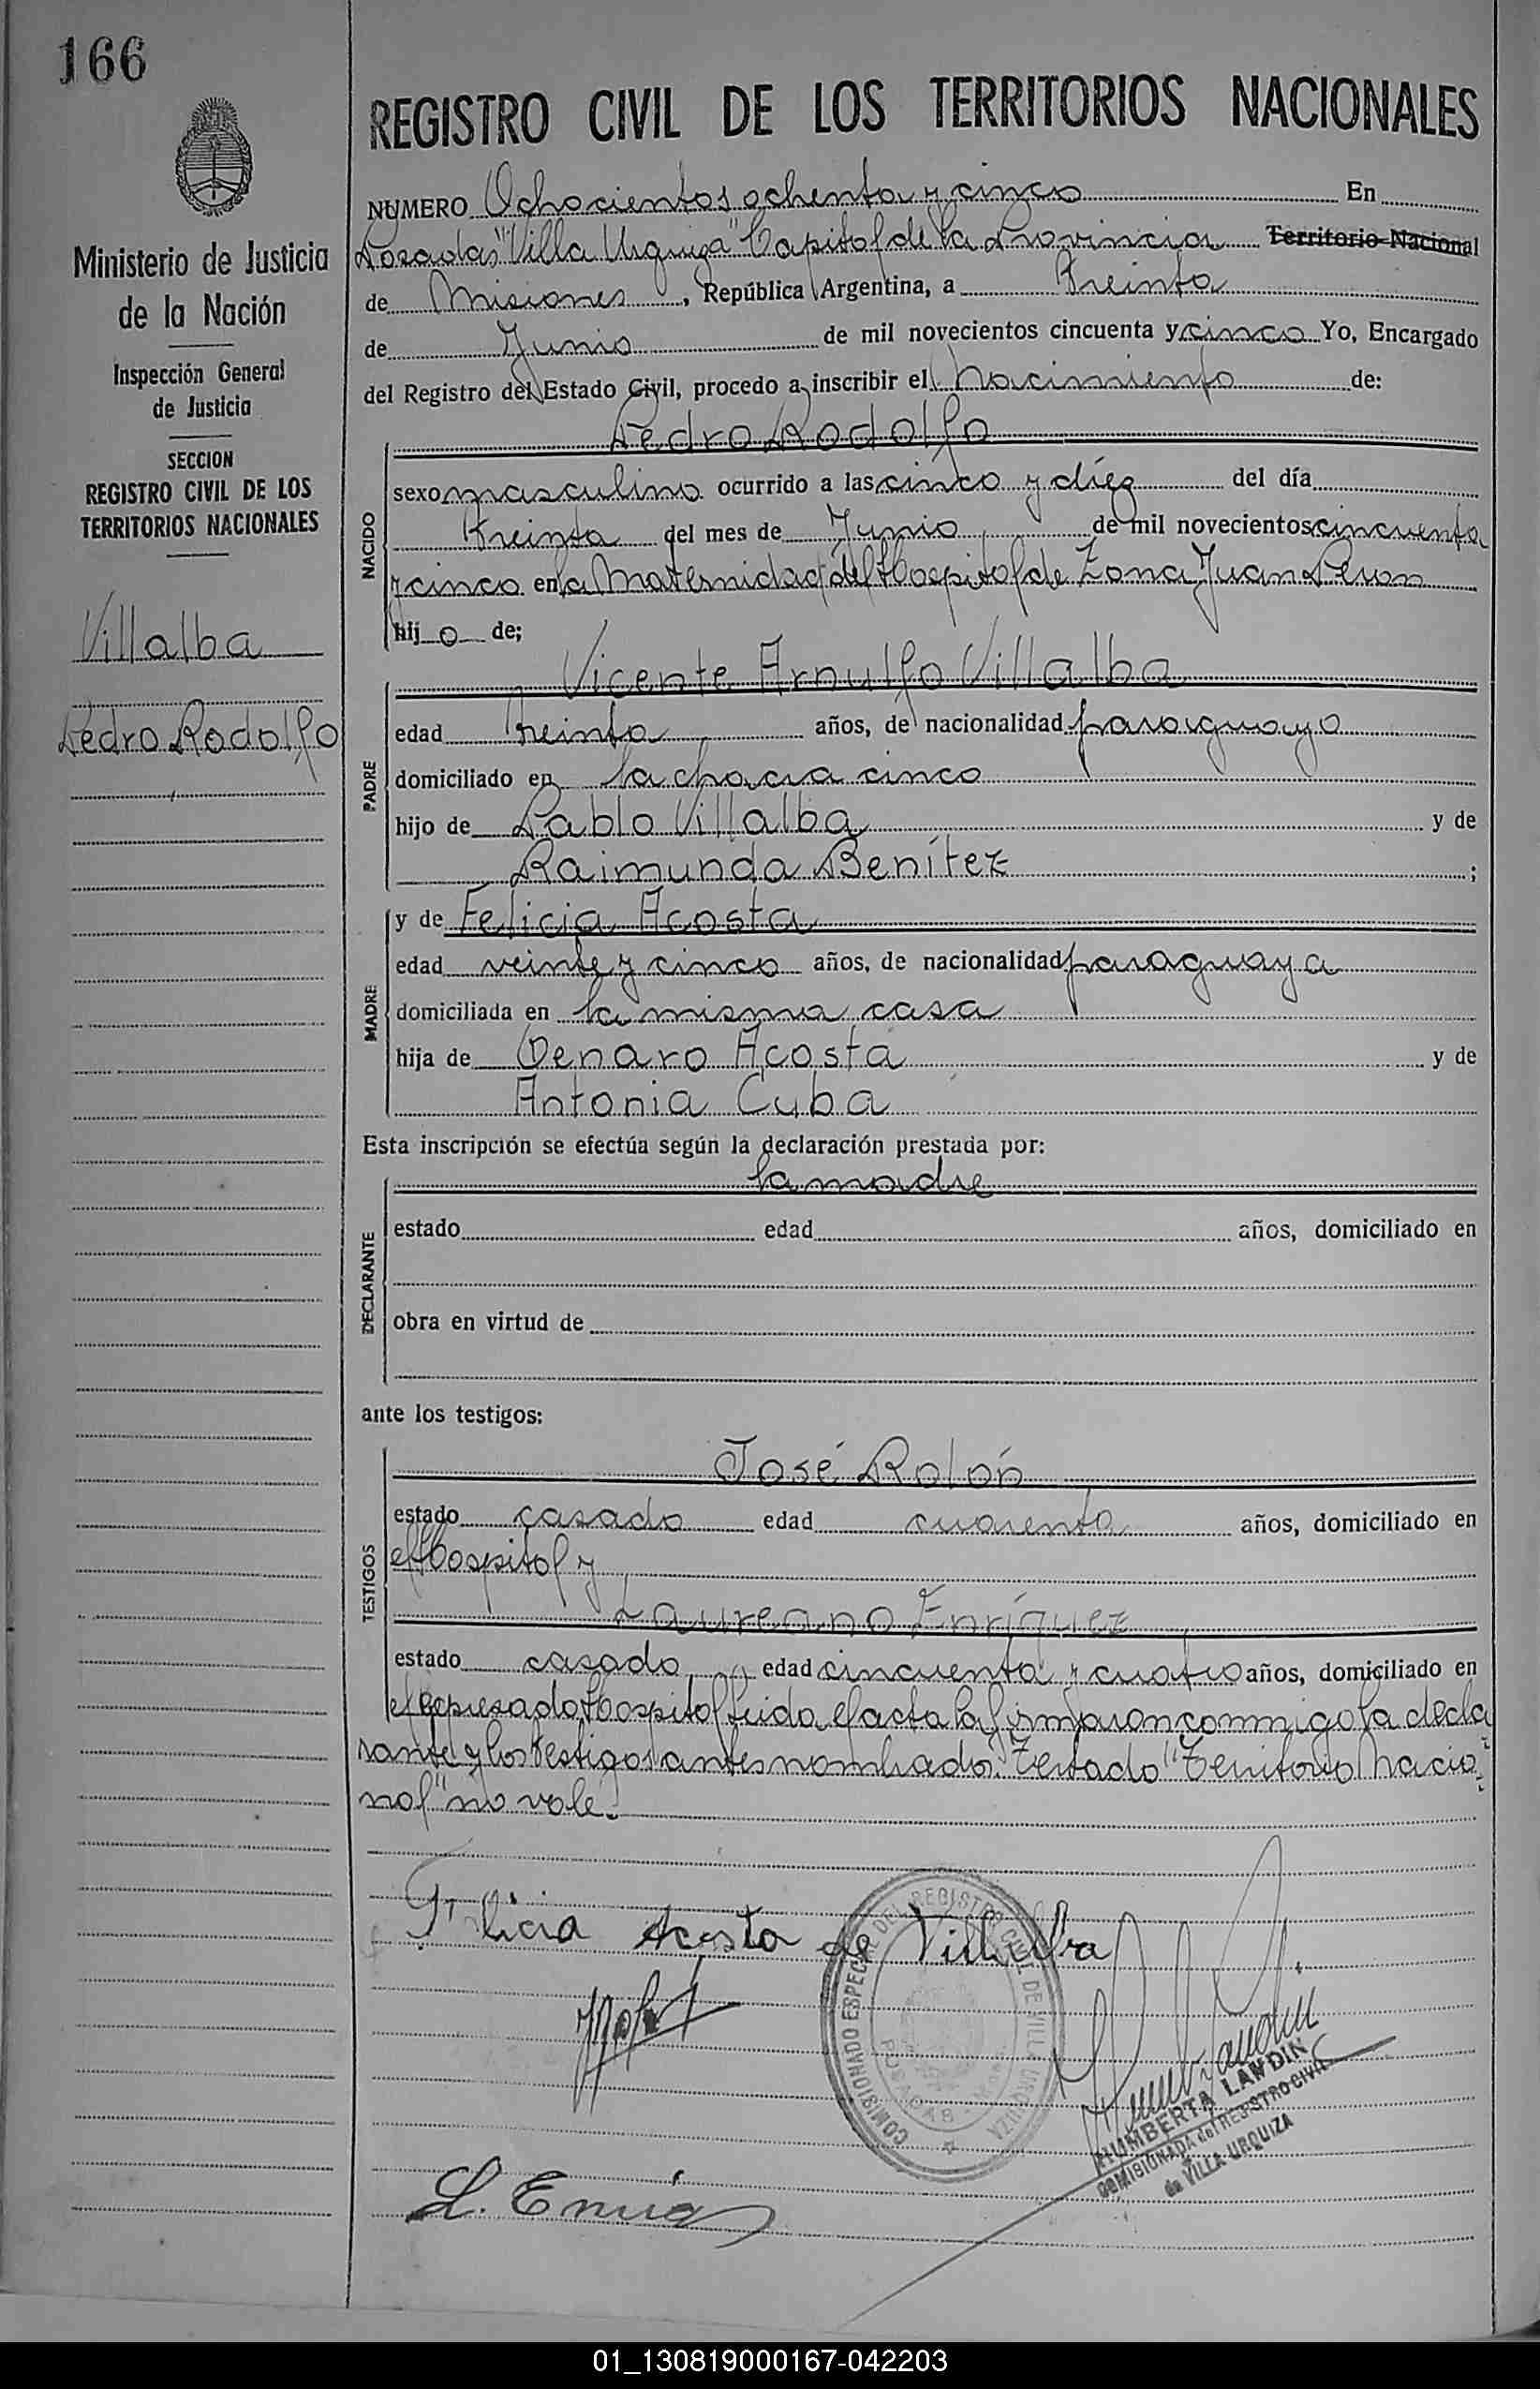 166
REGISTRO CIVIL DE LOS TERRITORIOS NACIONALES
Ministerio de Justicia
de la Nación
Inspección General
de Justicia
SECCION
REGISTRO CIVIL DE LOS
TERRITORIOS NACIONALES
Villalba
Pedro Rodolfo
NUMERO Ochocientos ochenta y cinco En
Posadas "Villa Urquiza" Capital de la Provincia Territorio Nacional
de Misiones, República Argentina, a Treinta
de Junio de mil novecientos cincuenta y cinco Yo, Encargado
del Registro del Estado Civil, procedo a inscribir el Nacimiento de:
NACIDO
Pedro Rodolfo
sexo masculino ocurrido a las cinco y diez del día
Treinta del mes de Junio de mil novecientos cincuenta
y cinco en la Maternidad del Hospital de Zona Juan Peron
hijo de;
PADRE
Vicente Arnulfo Villalba
edad Treinta años, de nacionalidad paraguayo
domiciliado en la chacra cinco
hijo de Pablo Villalba y de
Raimunda Benítez ;
MADRE
y de Felicia Acosta
edad veinte y cinco años, de nacionalidad paraguaya
domiciliada en la misma casa
hija de Denaro Acosta y de
Antonia Cuba
Esta inscripción se efectúa según la declaración prestada por:
DECLARANTE
la madre
estado edad años, domiciliado en
obra en virtud de
ante los testigos:
TESTIGOS
José Rolón
estado casado edad cuarenta años, domiciliado en
el Hospital y
Laureano Enríquez
estado casado edad cincuenta y cuatro años, domiciliado en
el expresado Hospital Leida el acta la firmaron conmigo la decla
rante y los testigos antes nombrados: Testado "Territorio Nacio-
nal" no vale.
Felicia Acosta de Villalba
COMISIONADO ESPECIAL DEL REGISTRO CIVIL DE VILLA URQUIZA
POSADAS
HUMBERTA LANDIN
COMISIONADA del REGISTRO CIVIL
de VILLA URQUIZA
01_130819000167-042203